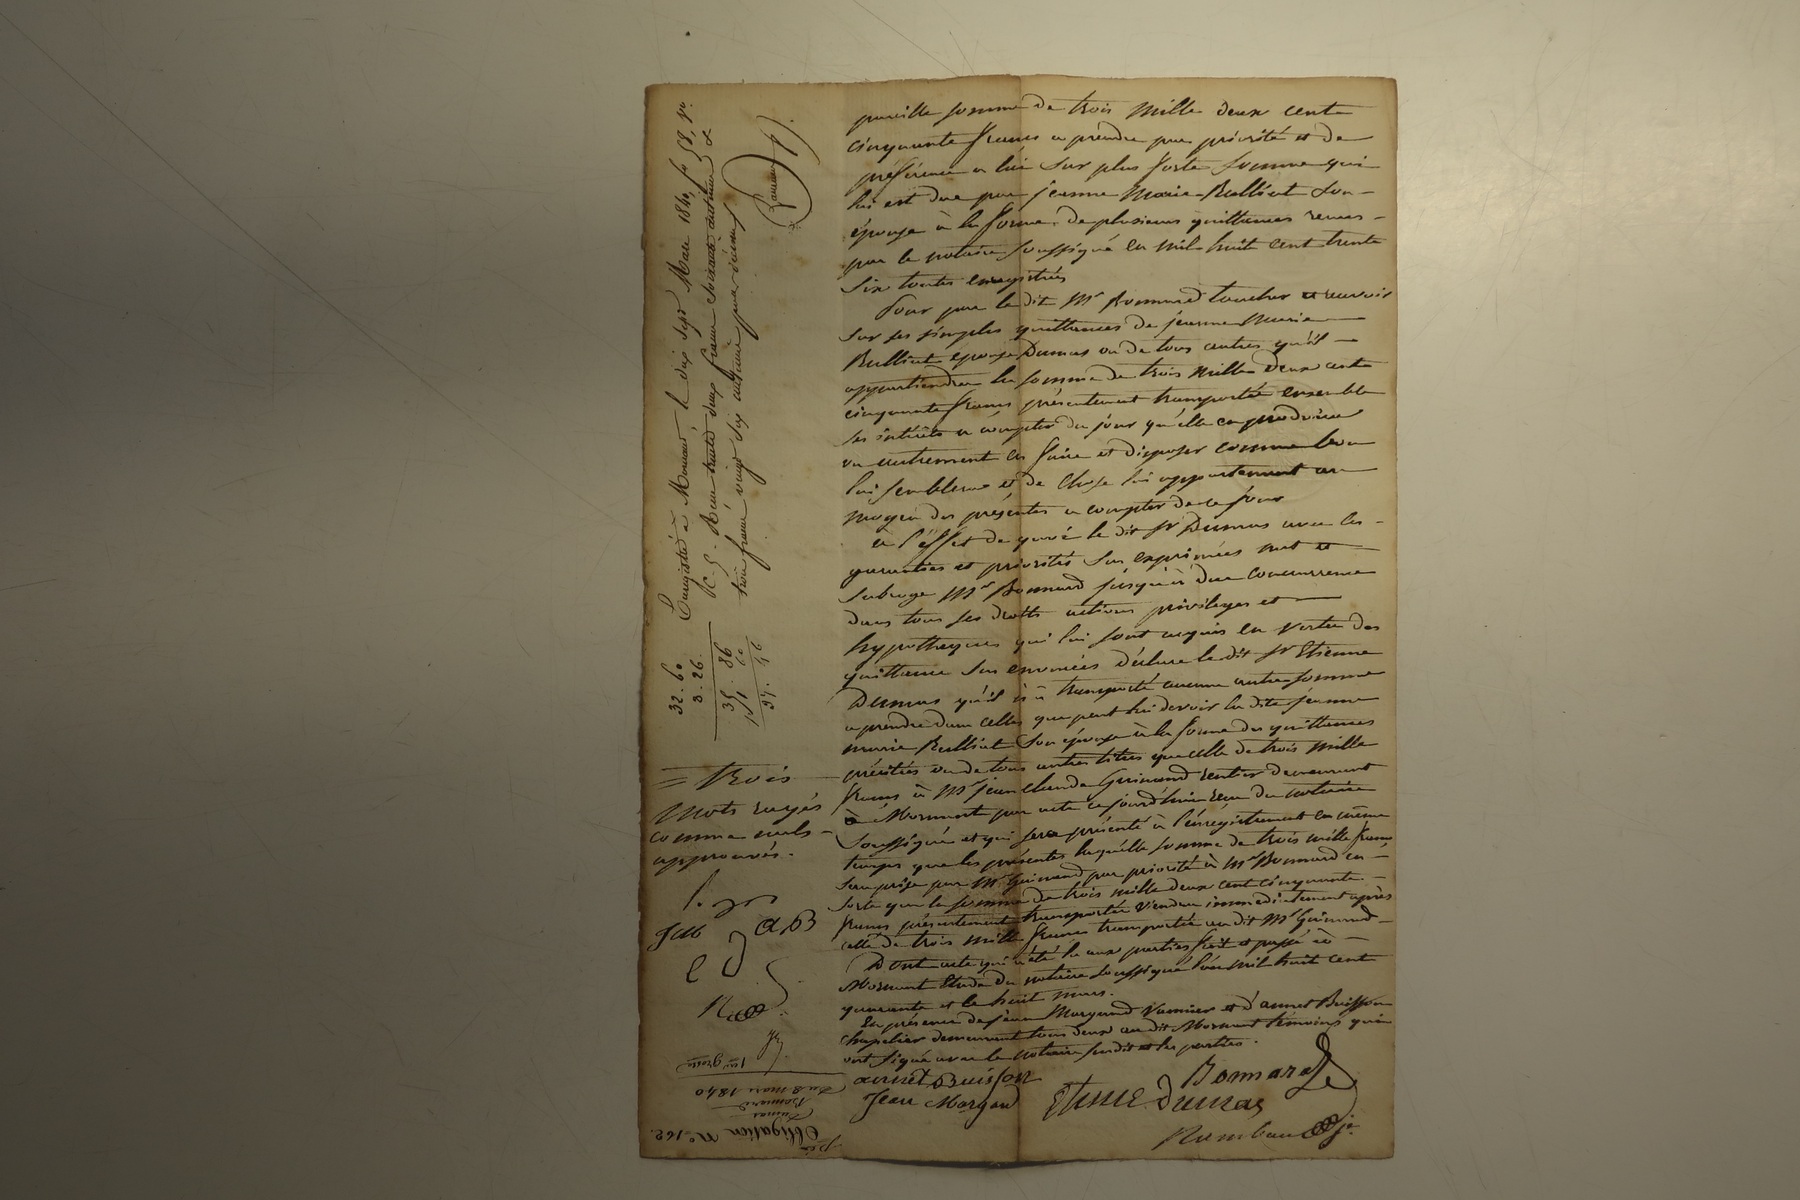 pareille somme de trois mille deux cent
cinquante francs a prendre par priorité et de
préférence a lui sur plus forte somme qui
lui est due par jeanne Marie Bulliat son
épouse à la forme de plusieurs quittances reçues
par le notaire soussigné en mil huit cent trente
six toutes enregistrées
Pour par le dit Mr Bonnard toucher et recevoir
sur ses simples quittances de jeanne Marie
Bulliat épouse Dumas ou de tous autres qu'il
appartiendra la somme de trois mille deux cent
cinquante francs présentement transportée ensemble
les intérêts a compter du jour qu'elle en produira
ou autrement en faire et disposer comme bon
lui semblera et de chose lui appartenant au
moyen des présentes a compter de ce jour
à l'éffet de quoi le dit Sr Dumas avec les
garanties et priorités sus exprimées met et
subroge Mr Bonnard jusqu'à due concurrence
dans tous ses droits actions privileges et
hypotheques qui lui sont acquis en vertu des
quittance sus énoncées déclare le dit Sr Etienne
Dumas qu'il n'a transporté aucune autre somme
a prendre dans celles que peut lui devoir la dite jeanne
marie Bulliat son épouse à la forme des quittances
précitées ou de tous autres titres que celle de trois mille
francs à Mr jean claude Guinand rentier demeurant
à Mornant par acte cejourd'hui reçu du notaire
soussigné et qui sera présenté à l'enregistrement en même
temps que les présentes laquelle somme de trois mille francs
sera prise par Mr Guinand par priorité à Mr Bonnard en
sorte que la somme de trois mille deux cent cinquante
francs présentement transportée viendra immediatement après
celle de trois mille francs transportée au dit Mr Guinand
Dont acte qui a été lu aux parties fait et passé à
Mornant Etude du notaire soussigné l'an mil huit cent
quarante et le huit mars.
En présence de jean Margand Vannier et d'annet Buisson
chapelier demeurant tous deux au dit Mornant témoins qui
ont signé avec le notaire susdit et les parties.
annet Buisson
Jean Margand
Etienne Dumas
Bonnard
Rambaud jne
Enregistré à Mornant le dix sept Mars 1840, fo 58, vo.
trois francs vingt six centimes pour décime
Rambaud
32. 60
3. 26
35. 86
1 60
37. 46
= trois
Mots rayés
comme nuls
approuvés.
a, B
e D
Obligation No 162.
Dumas
Bonnard
du 8 mars 1840
1ere grosse